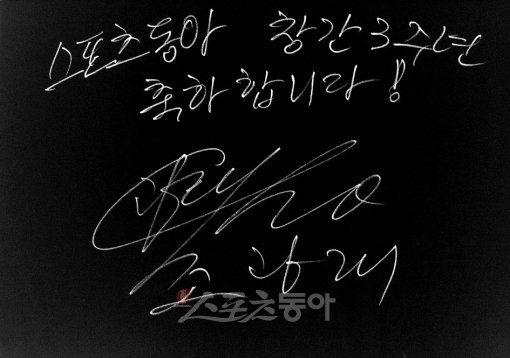 스포츠동아 창간 3주년
축하합니다!
조광래
스포츠동아